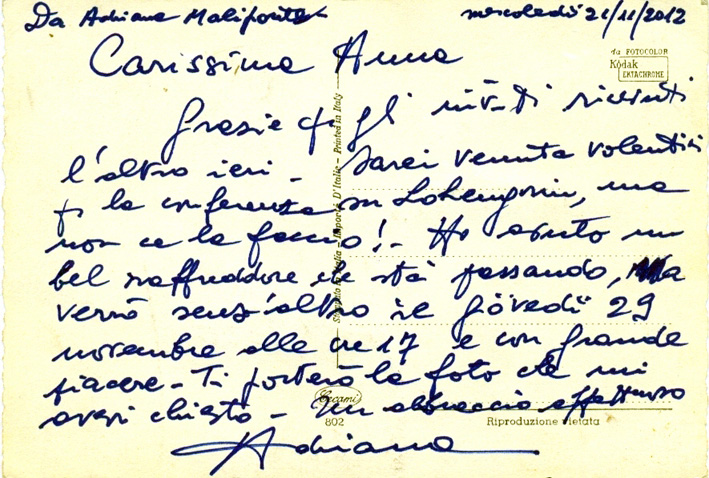 Da Adriana Maliponte mercoledì 21/11/2012
da FOTOCOLOR
Kodak
EKTACHROME
Carissima Anna
Grazie x gli inviti ricevuti
l'altro ieri - Sarei venuta volentieri
x la conferenza su Lohengrin, ma
non ce la faccio! - Ho avuto un
bel raffreddore che sta passando, Ma
verrò senz'altro il giovedì 29
novembre alle ore 17 e con grande
piacere - Ti porterò la foto che mi
avevi chiesto - Un abbraccio affettuoso
Adriana
Importé D'Italie - Printed in Italy
Cecami
802
Riproduzione vietata